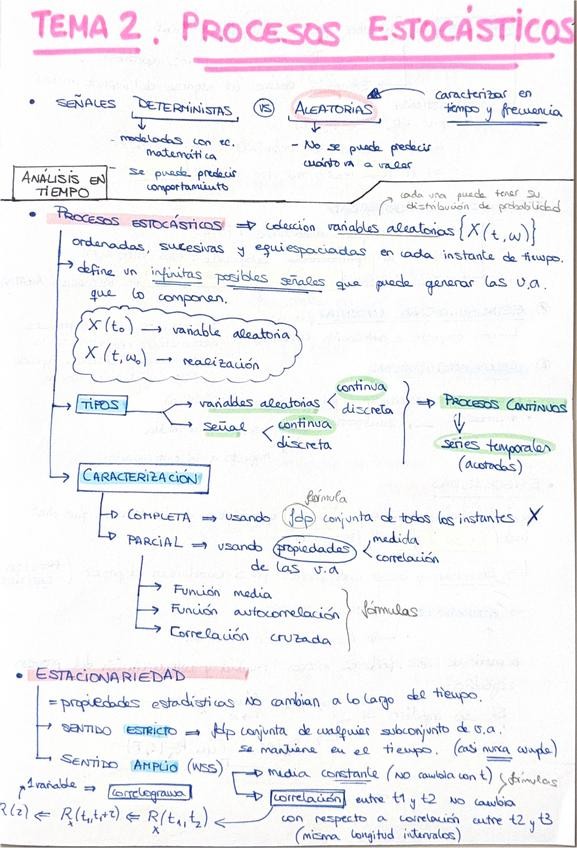 TEMA 2. PROCESOS ESTOCÁSTICOS
• SEÑALES DETERMINISTAS VS ALEATORIAS
caracterizar en
tiempo y frecuencia
- modeladas con ec.
matemática
- se puede predecir
comportamiento
- No se puede predecir
cuánto va a valer
ANÁLISIS EN
TIEMPO
cada una puede tener su
distribución de probabilidad
• PROCESOS ESTOCÁSTICOS ⇒ colección variables aleatorias {X(t,ω)}
ordenadas, sucesivas y equiespaciadas en cada instante de tiempo.
→ define un infinitas posibles señales que puede generar las v.a.
que lo componen.
X(t₀) → variable aleatoria
X(t,ω₀) → realización
→ TIPOS → variables aleatorias < continua
discreta
→ señal < continua
discreta
⇒ PROCESOS CONTINUOS
↓
series temporales
(acotadas)
→ CARACTERIZACIÓN
fórmula
→ COMPLETA ⇒ usando fdp conjunta de todos los instantes X
→ PARCIAL ⇒ usando propiedades < medida
correlación
de las v.a
→ Función media
→ Función autocorrelación
→ Correlación cruzada
} fórmulas
• ESTACIONARIEDAD
= propiedades estadísticas NO cambian a lo largo del tiempo.
→ SENTIDO ESTRICTO ⇒ fdp conjunta de cualquier subconjunto de v.a.
se mantiene en el tiempo. (casi nunca cumple)
→ SENTIDO AMPLIO (WSS)
→ media constante (no cambia con t) } fórmulas
→ correlación entre t1 y t2 no cambia
con respecto a correlación entre t2 y t3
(misma longitud intervalos)
1 variable ⇒ correlograma
R(z) ⇐ Rx(t₁,t₁+z) ⇐ Rx(t₁,t₂)